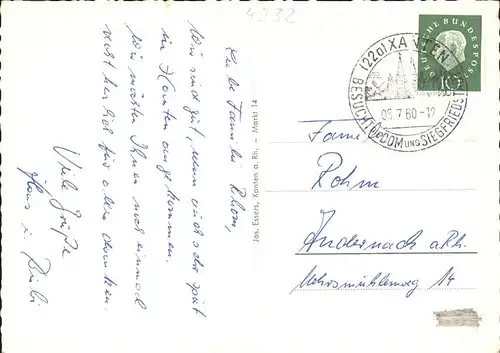 4232
Liebe Familie Rohm,
Wir sind gut, wenn auch sehr spät
in Xanten angekommen.
Wir möchten Ihnen noch einmal
recht herzlich für alles danken.
Viele Grüße
Hans u.
Jos. Essers, Xanten a. Rh. — Markt 14
(22a) XANTEN
05.7.60-12
BESUCHT DOM UND SIEGFRIEDS
DEUTSCHE BUNDESPOST
10
Fam.
Rohm
Andernach a/Rh.
14